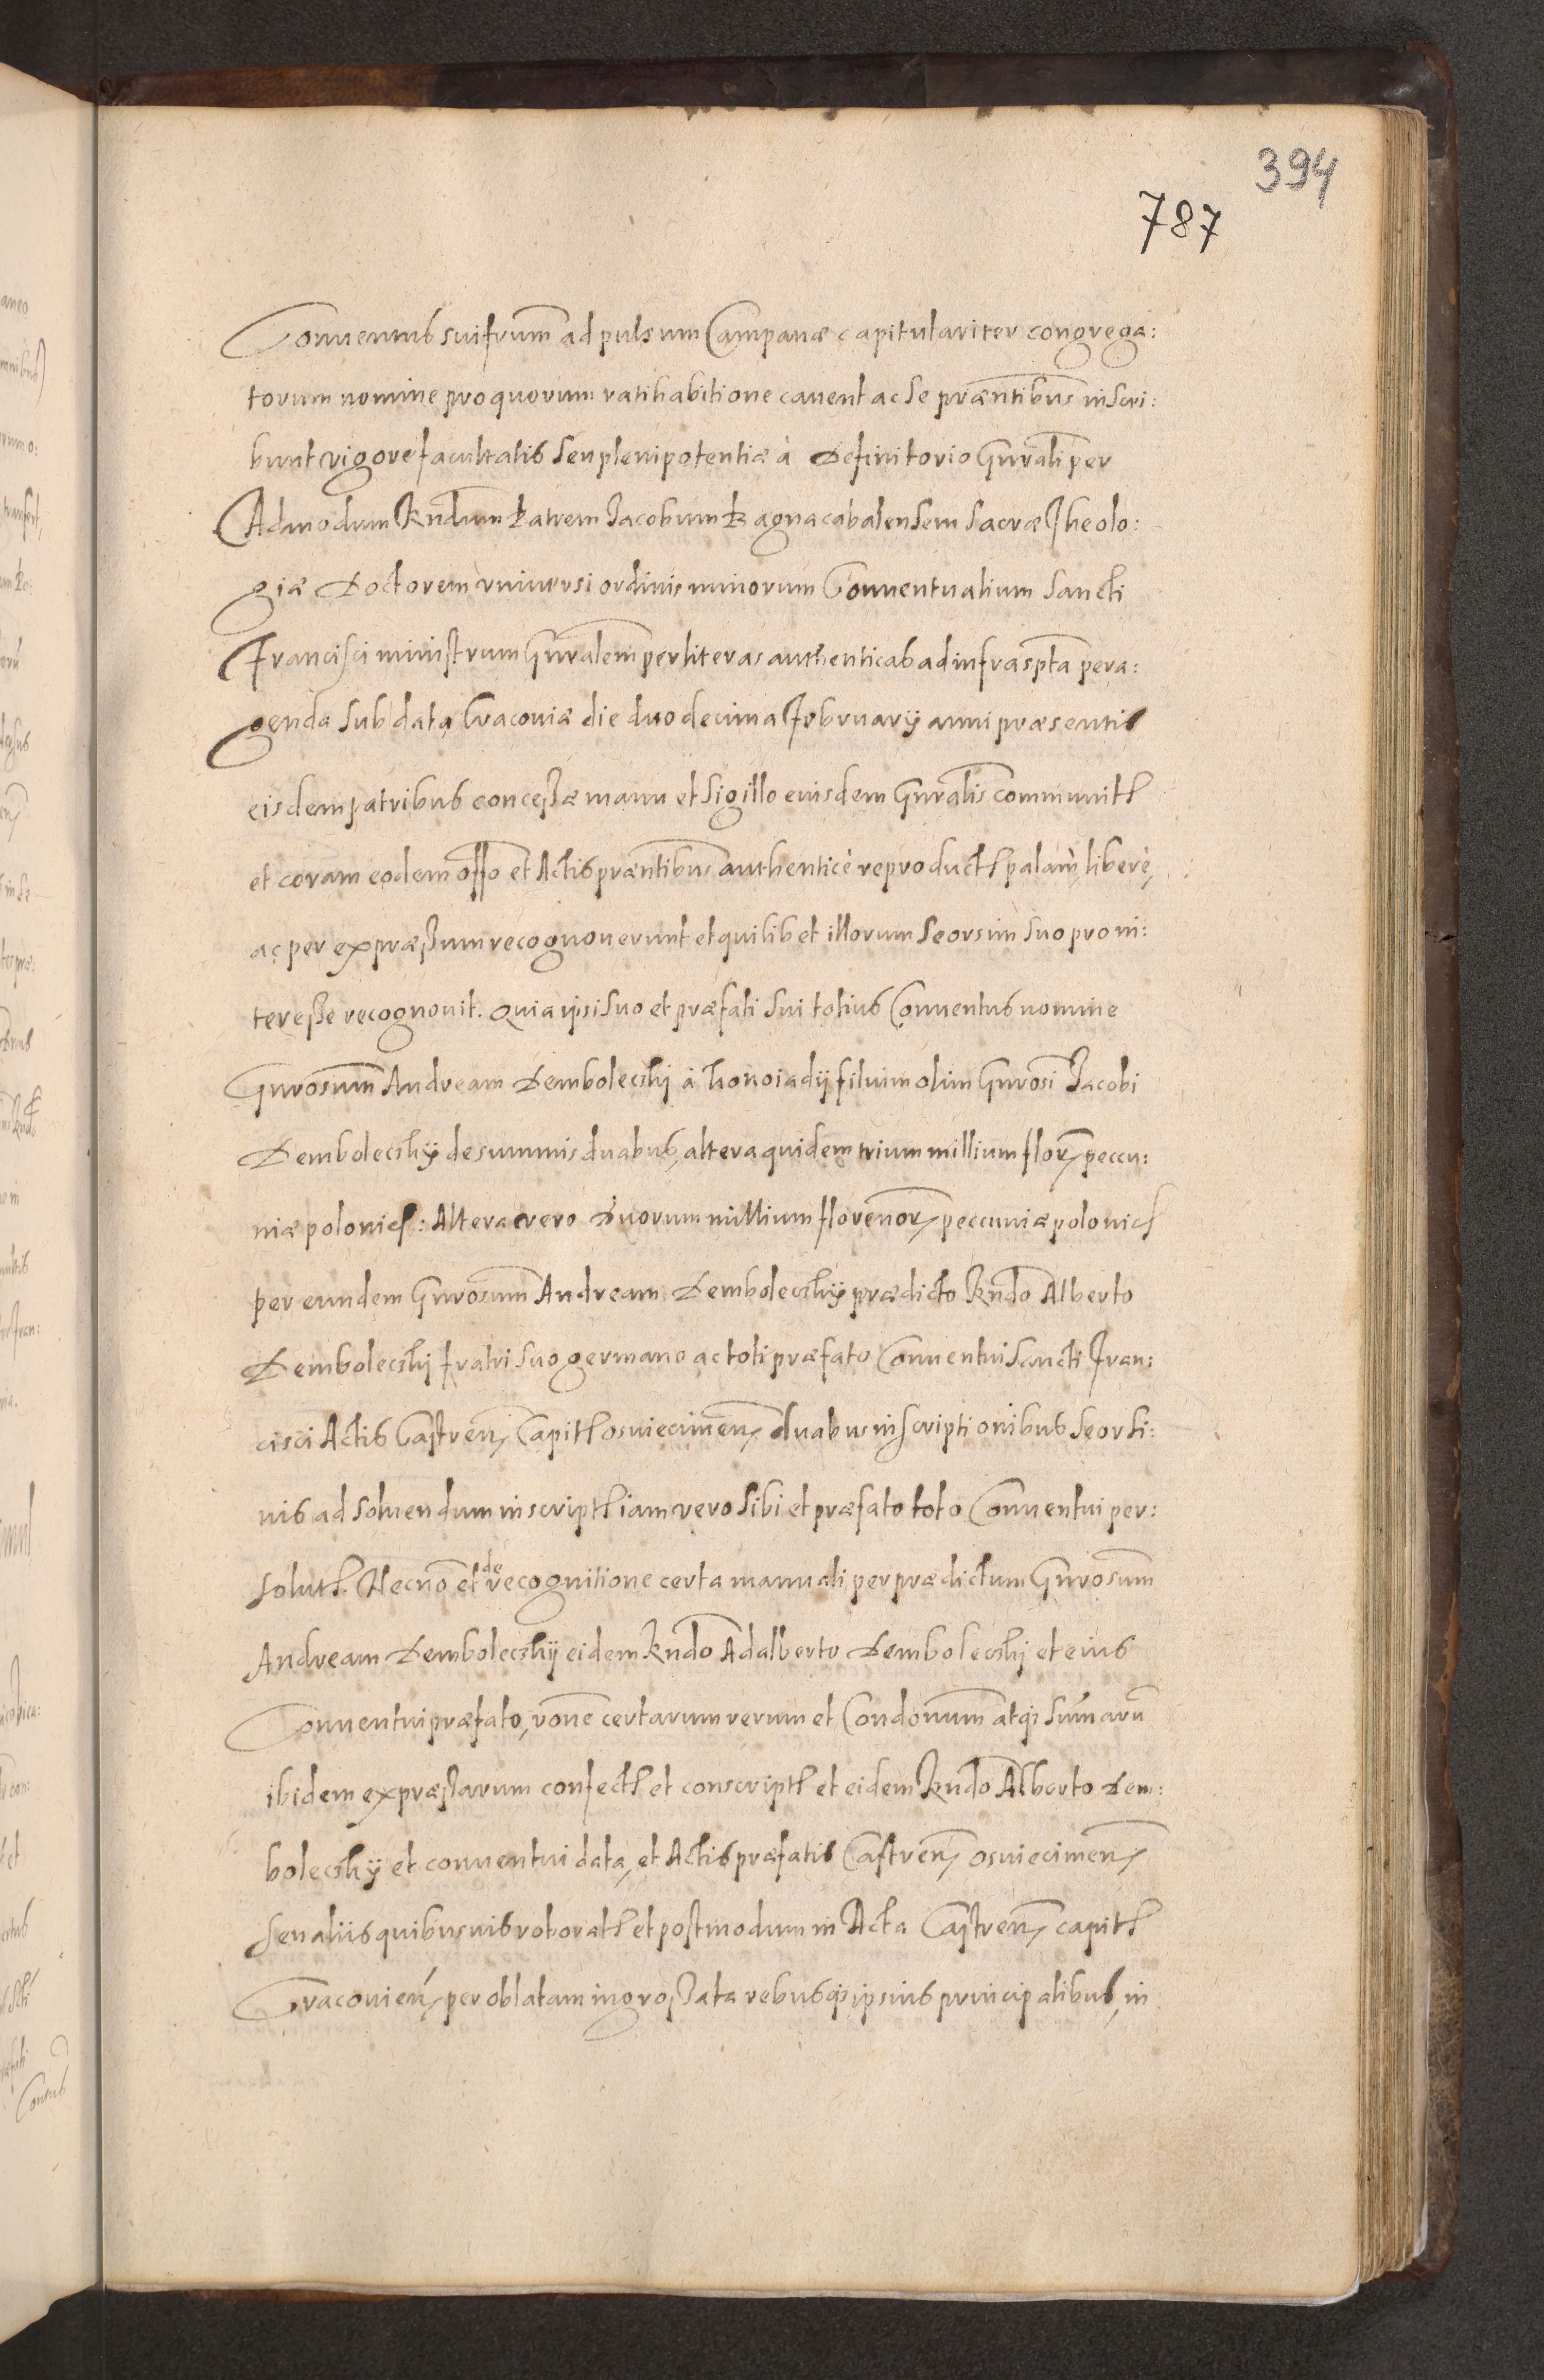 394
787
Conuentus sui frum̄ ad pulsum Campanæ capitulariter congrega:
torum nomine pro quorum ratihabitione cauent ac se præntibus inscri:
bunt vigore facultatis seu plenipotentiæ à Definitorio Gnrali per
Admodum Rndum Patrem Jacobum Bagnacabalensem Sacræ Theolo:
giæ Doctorem vniuersi ordinis minorum Conuentualium Sancti
Francisci ministrum Gnralem per literas authenticas ad infraspta pera:
genda sub data Cracouiæ die duodecima February anni præsentis
eisdem patribus concessæ manu et Sigillo eiusdem Gnralis communitt
et coram eodem offo et Actis præntibus authenticè reproductt palàm, liberè,
ac per expræssum recognouerunt et quilibet illorum seorsim suo pro in:
teresse recognouit. Quia ipsi suo et præfati sui totius Conuentus nomine
Gnrosum Andream Dembolecshy à Konoiadÿ filium olim Gnrosi Jacobi
Dembolecshÿ de summis duabus, altera quidem trium millium florꝫ peccu:
niæ polonicꝭ: Altera vero Duorum millium florenorꝫ peccuniæ polonicꝭ
per eundem Gnrosum Andream Dembolecshÿ prædicto Rndo Alberto
Dembolecshy fratri suo germano ac toti præfato Conuentui Sancti Fran:
cisci Actis Castrenꝫ Capitt osuiecimenꝫ duabus inscriptionibus seorsi:
uis ad soluendum inscriptt iam vero sibi et præfato toto Conuentui per:
solutt. Necno et de recognitione certa manuali per prædictum Gnrosum
Andream Dembolecshÿ eidem Rndo Adalberto Dembolecshy et eius
Conuentui præfato, rone certarum rerum et Condonum atqꝫ sumarū
ibidem expræssarum confectt et conscriptt et eidem Rndo Alberto Dem:
bolecshÿ et conuentui data, et Actis præfatis Castrenꝫ osuiecimenꝫ
seu aliis quibusuis roboratt et postmodum in Acta Castrenꝫ capitt
Cracouienꝫ per oblatam ingrossata rebusqꝫ ipsius principalibus, in